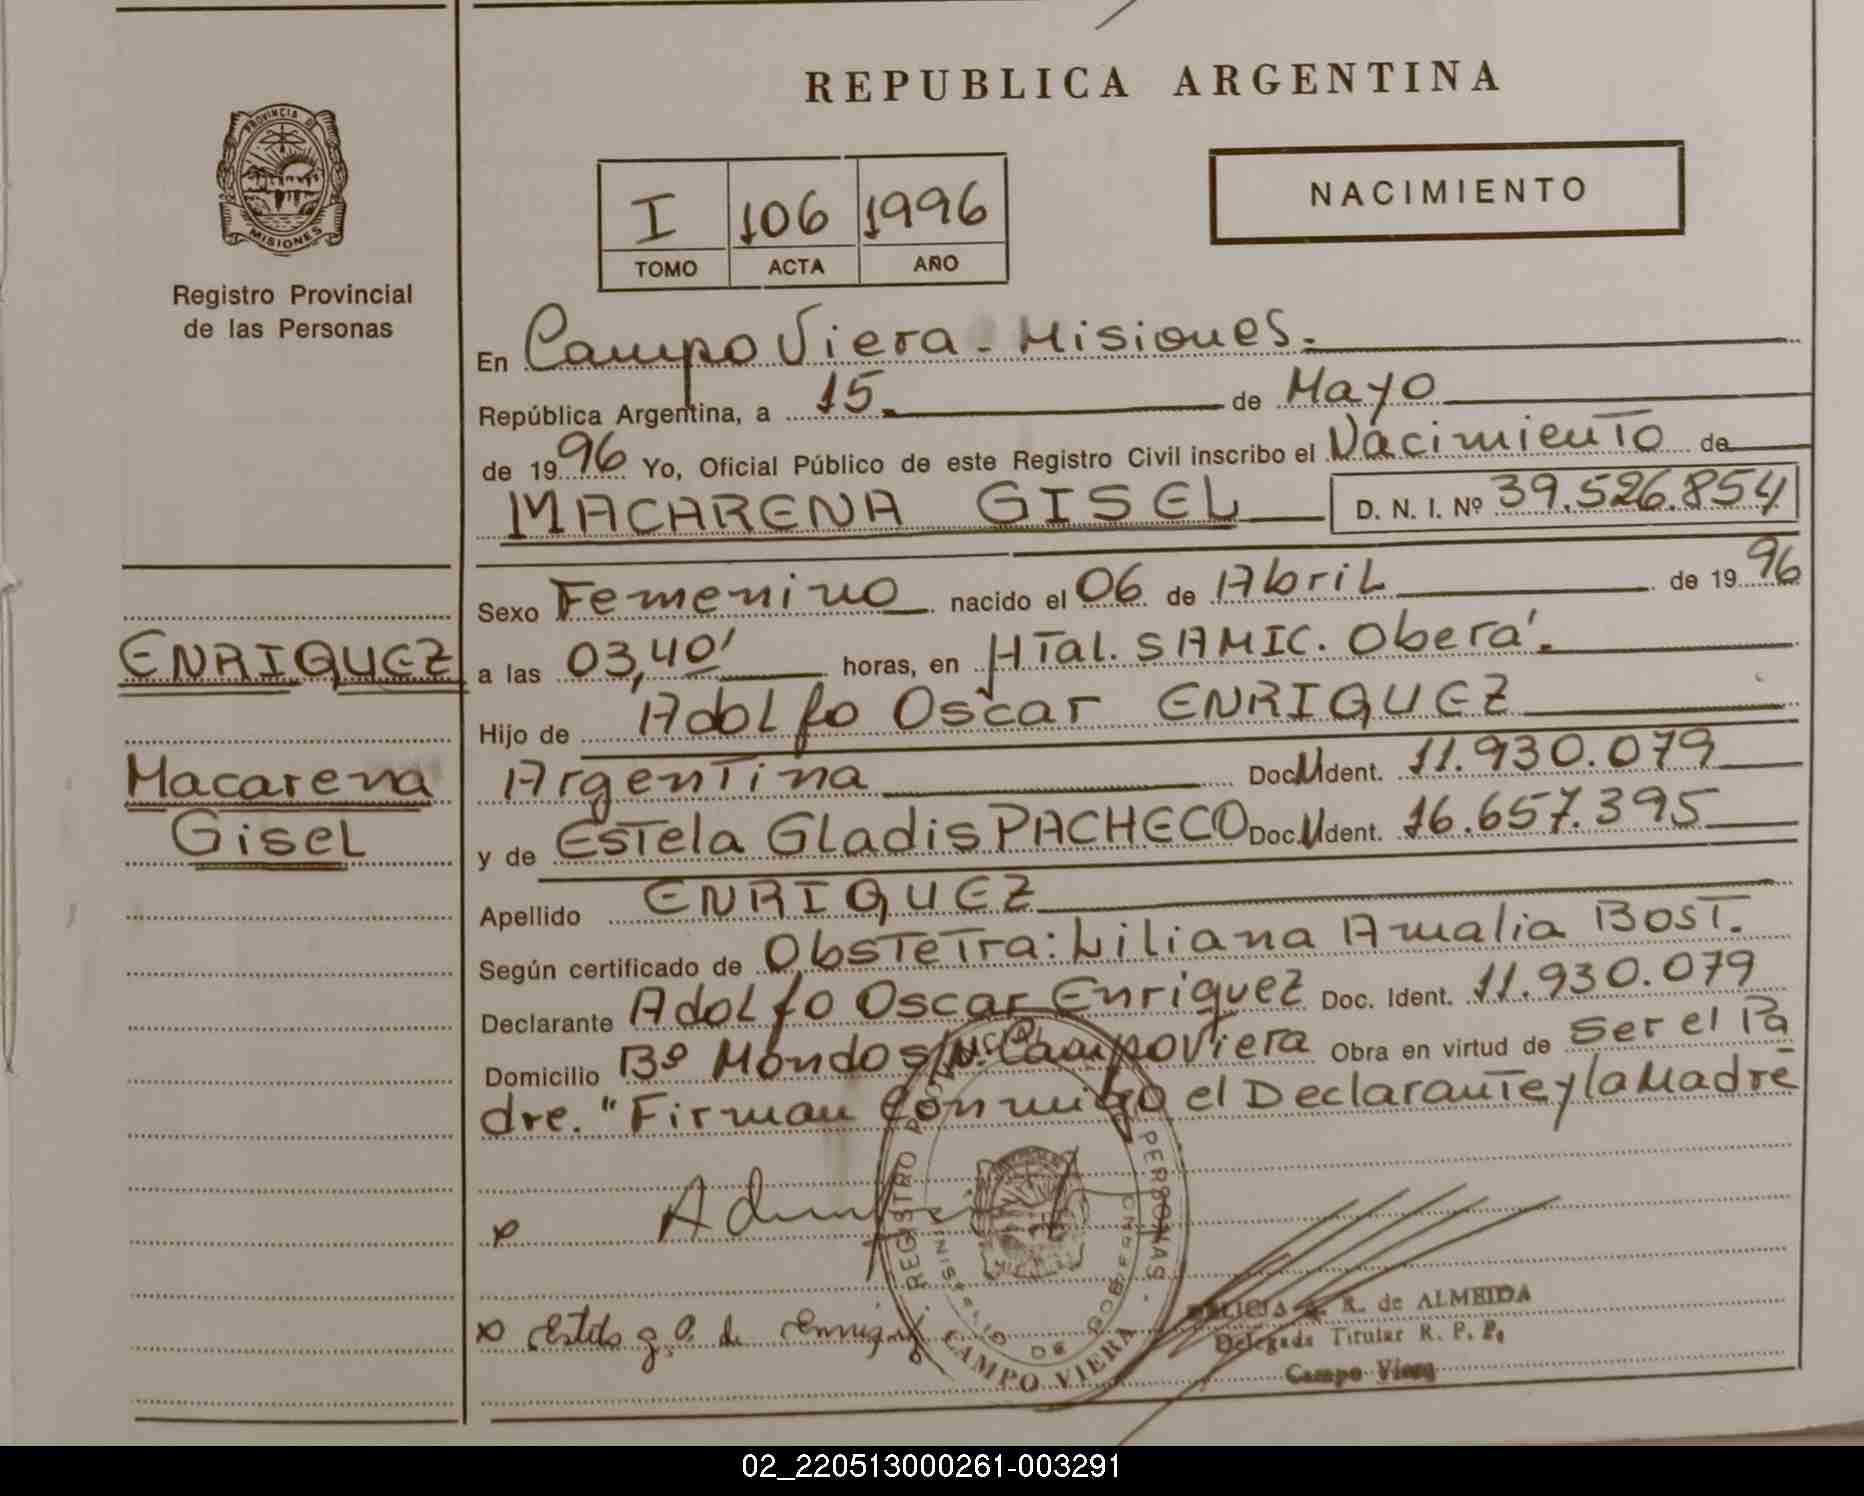 REPUBLICA ARGENTINA
PROVINCIA DE
MISIONES
Registro Provincial
de las Personas
I 106 1996
TOMO ACTA AÑO
NACIMIENTO
En Campo Viera - Misiones.
República Argentina, a 15 de Mayo
de 1996 Yo, Oficial Público de este Registro Civil inscribo el Nacimiento de
MACARENA GISEL D. N. I. Nº 39.526.854
ENRIQUEZ
Macarena
Gisel
Sexo Femenino nacido el 06 de Abril de 1996
a las 03,40' horas, en HTal. SAMIC. Oberá.
Hijo de Adolfo Oscar ENRIQUEZ
Argentina Doc. Ident. 11.930.079
y de Estela Gladis PACHECO Doc. Ident. 16.657.395
Apellido ENRIQUEZ
Según certificado de Obstetra: Liliana Amalia Bost.
Declarante Adolfo Oscar Enriquez Doc. Ident. 11.930.079
Domicilio Bº Mondo S/Nº. Campo Viera Obra en virtud de Ser el Pa
dre. "Firman Conmigo el Declarante y la Madre
REGISTRO PERSONAS
MINISTERIO DE GOBIERNO
CAMPO VIERA
R. de ALMEIDA
Delegada Titular R. P. P.
Campo Viera
02_220513000261-003291